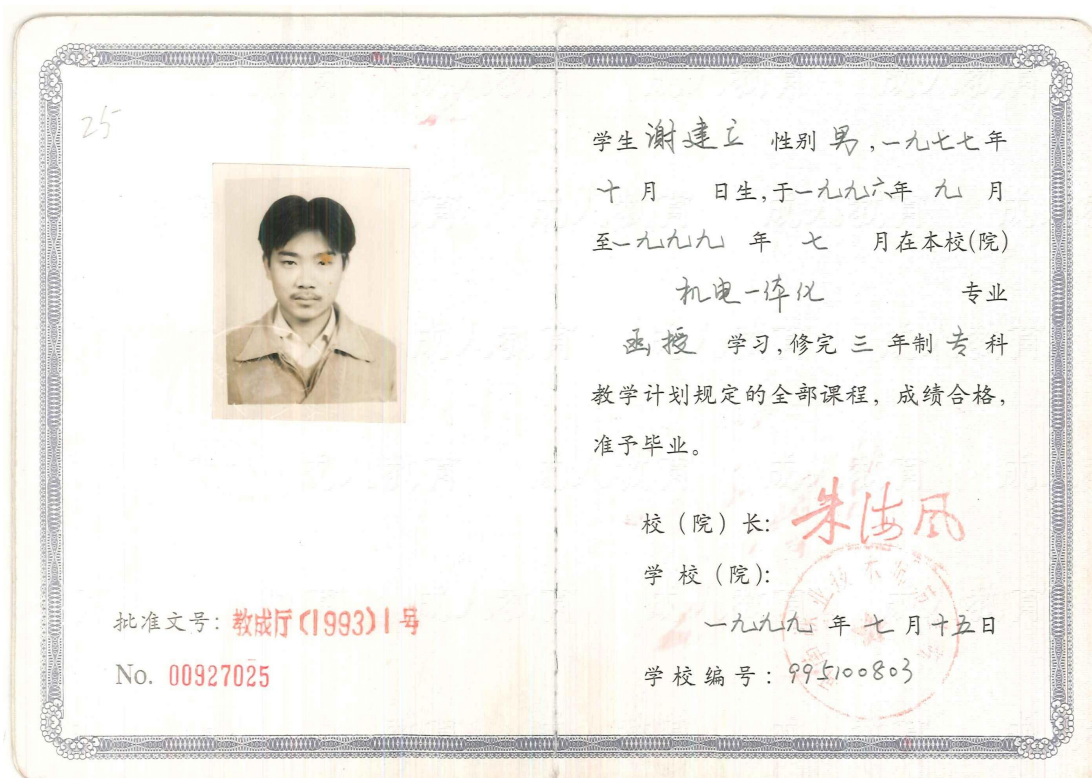 25
批准文号：教成厅(1993)1号
No. 00927025
学生 谢建立 性别 男，一九七七年
十月 日生，于一九九六年 九 月
至一九九九 年 七 月在本校(院)
机电一体化 专业
函授 学习，修完 三 年制 专 科
教学计划规定的全部课程，成绩合格，
准予毕业。
校（院）长：朱海风
学校（院）：
一九九九 年 七月十五日
学校编号：995100803